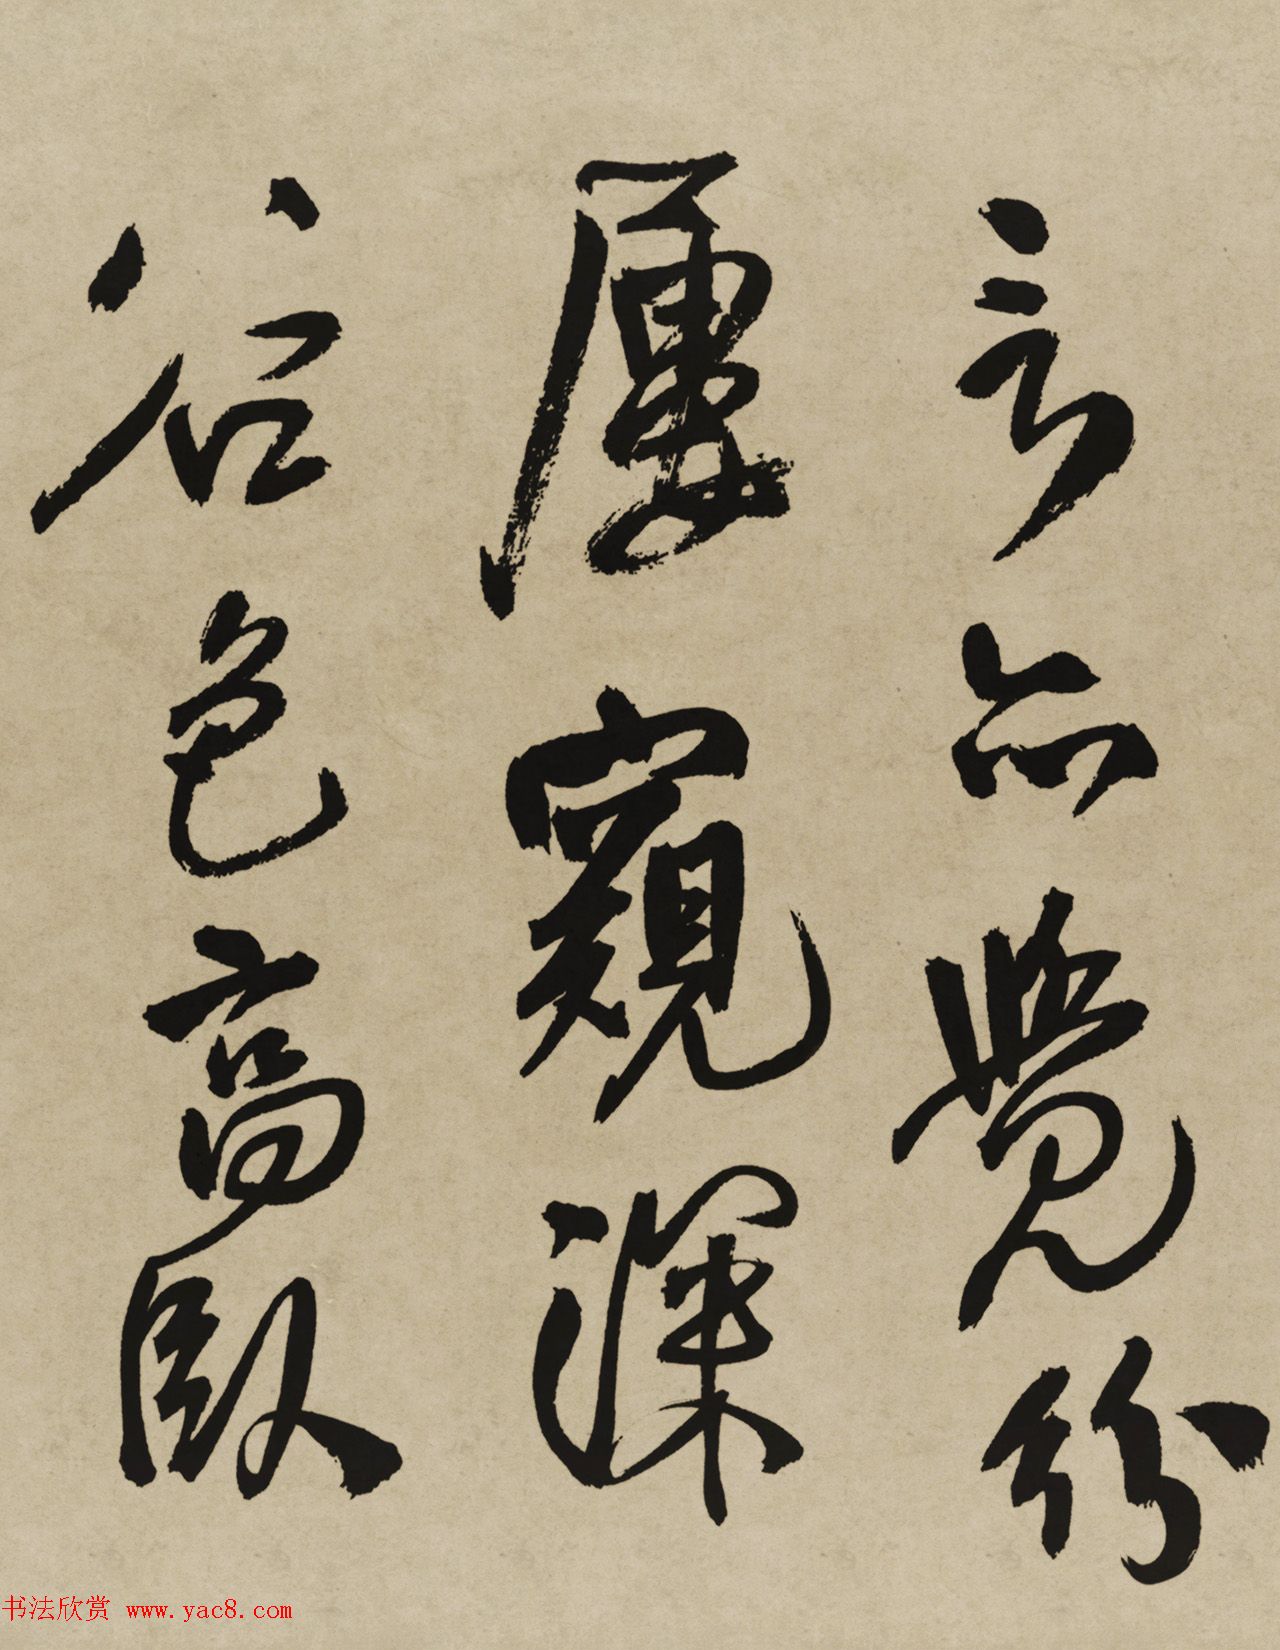 言亦覺紛
屢窺深
谷色高臥
书法欣赏 www.yac8.com